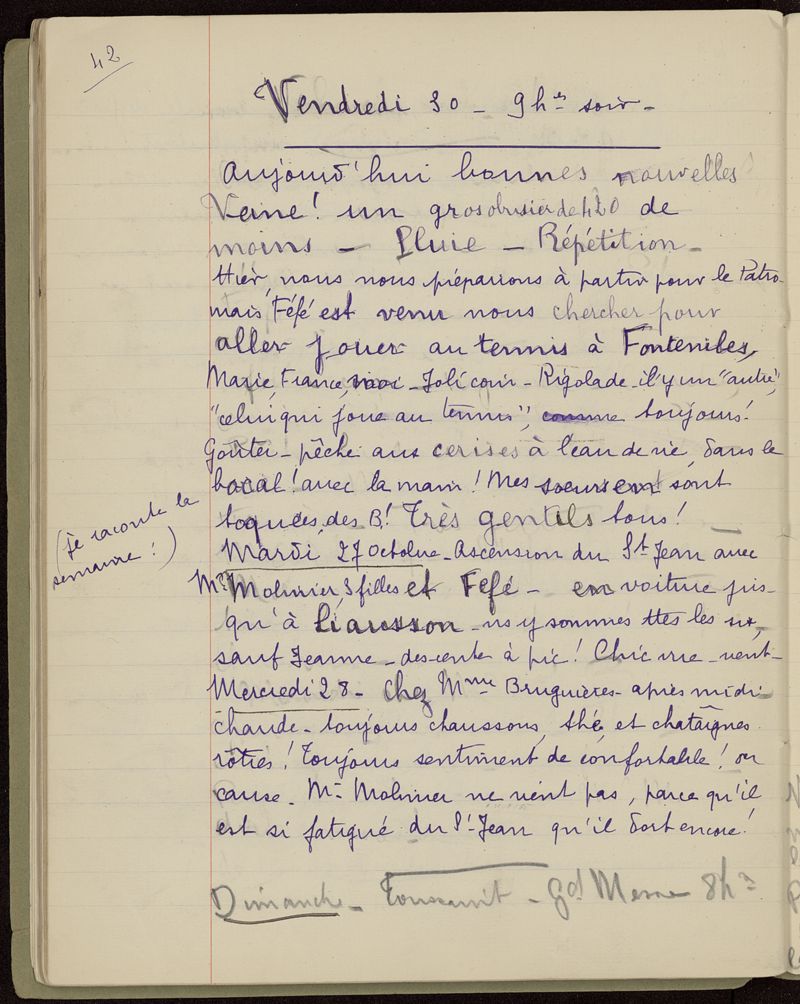 42
Vendredi 30 - 9hes soir -
Aujourd'hui bonnes nouvelles
Veine! un gros obusier de 420 de
moins - Pluie - Répétition -
Hier, nous nous préparions à partir pour le Patro
mais Féfé est venu nous chercher pour
aller jouer au tennis à Fontenilles,
Marie, France, moi - Joli coin - Rigolade - il y un "autre",
"celui qui joue au tennis", comme toujours!
Goûter - pêche aux cerises à l'eau de vie, dans le
bocal! avec la main! Mes soeurs en sont
toquées, des B! Très gentils tous!
(je raconte la
semaine!)
Mardi, 27 Octobre - Ascension du St Jean avec
Mr Molinier, 3 filles et Féfé - en voiture jus-
qu'à Liausson - ns y sommes ttes les six,
sauf Jeanne - descente à pic! Chic vue - vent -
Mercredi 28 - Chez Mme Bruguières - après midi
chaude - toujours chaussons, thé, et chataîgnes
rôties! Toujours sentiment de confortable! on
cause. Mr Molinier ne vient pas, parce qu'il
est si fatigué du St Jean qu'il dort encore!
Dimanche - Toussaint - Gd Messe 8h